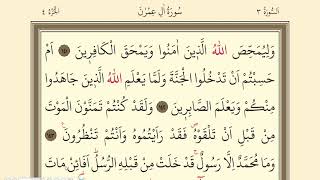 السُّورَةُ ٣ سُورَةُ اٰلِ عِمْرٰنَ الجُزْءُ ٤
وَلِيُمَحِّصَ اللّٰهُ الَّذِينَ اٰمَنُوا وَيَمْحَقَ الْكَافِرِينَ ١٤١ اَمْ
حَسِبْتُمْ اَنْ تَدْخُلُوا الْجَنَّةَ وَلَمَّا يَعْلَمِ اللّٰهُ الَّذِينَ جَاهَدُوا
مِنْكُمْ وَيَعْلَمَ الصَّابِرِينَ ١٤٢ وَلَقَدْ كُنْتُمْ تَمَنَّوْنَ الْمَوْتَ
مِنْ قَبْلِ اَنْ تَلْقَوْهُ فَقَدْ رَاَيْتُمُوهُ وَاَنْتُمْ تَنْظُرُونَ ١٤٣
وَمَا مُحَمَّدٌ اِلَّا رَسُولٌ قَدْ خَلَتْ مِنْ قَبْلِهِ الرُّسُلُ اَفَائِنْ مَاتَ